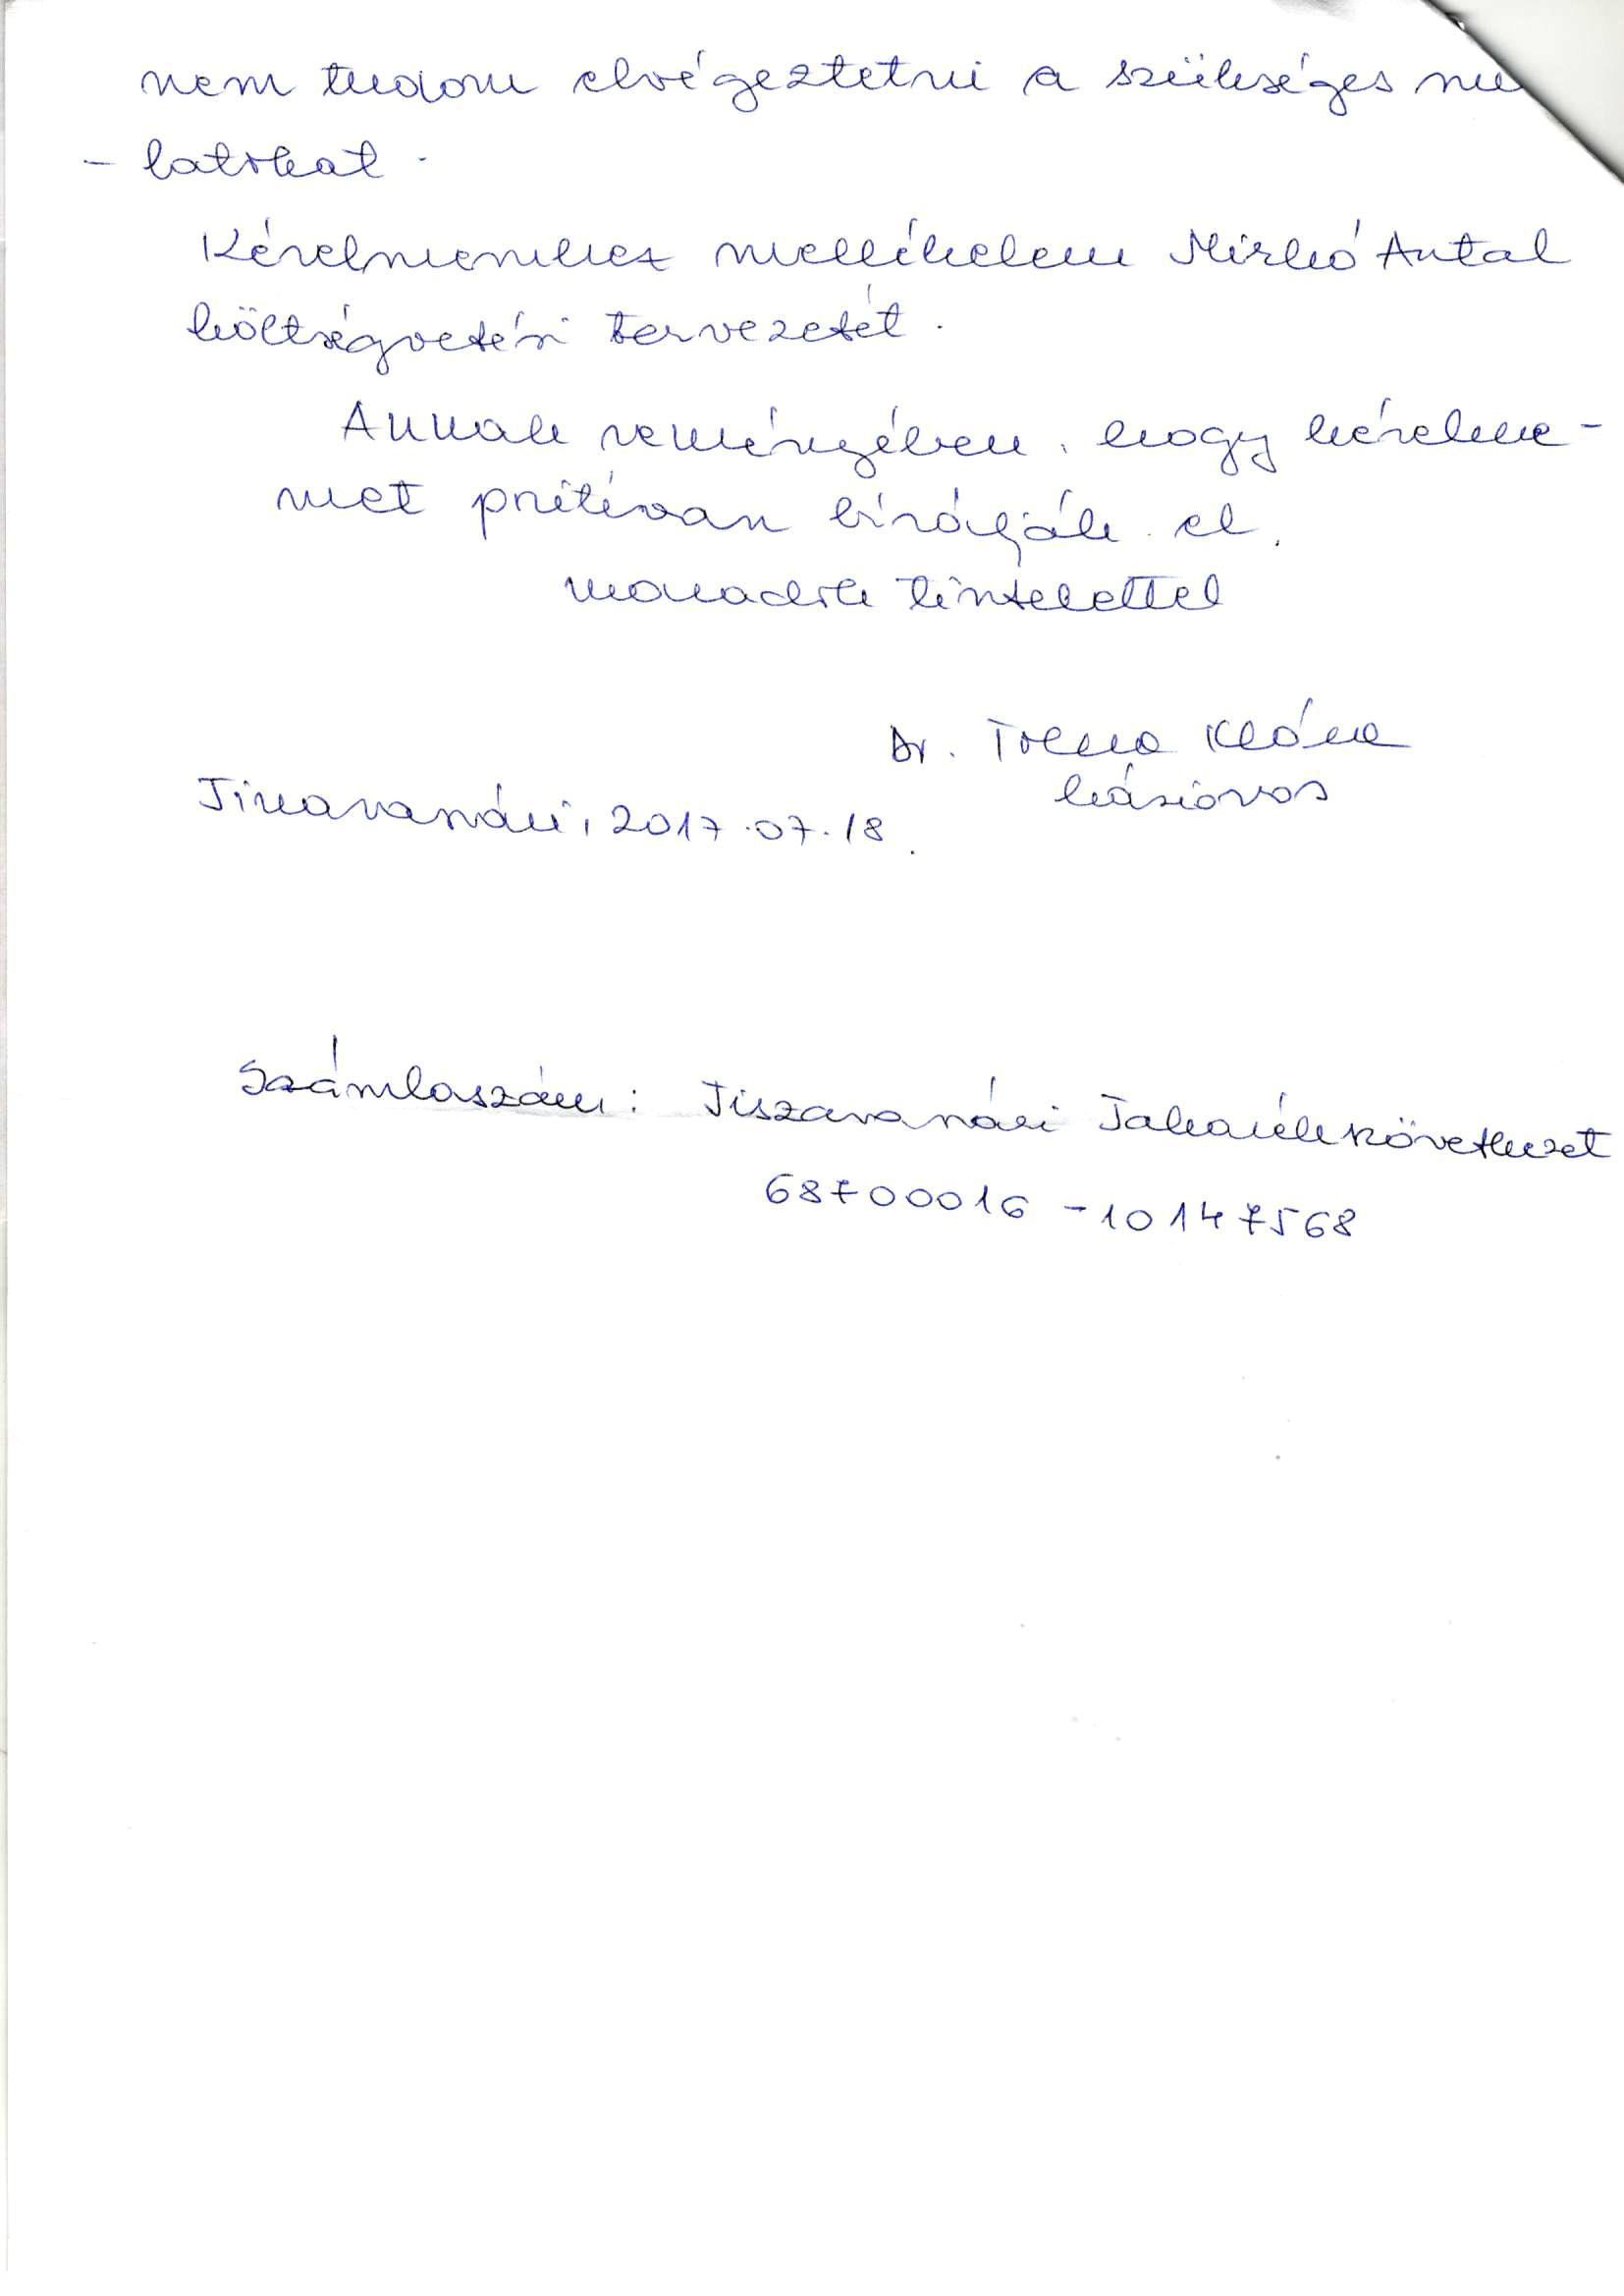 nem tudom elvégeztetni a szükséges mu
- latokat.
Kérelmemhez mellékelem Mirkó Antal
költségvetési tervezetét.
Annak reményében, hogy kérelme-
met pozitívan bírálják el,
maradok tisztelettel
Dr. Klára
háziorvos
Tiszavasvári, 2017.07.18.
Számlaszám: Tiszavasvári Takarékszövetkezet
68700016 - 10147568